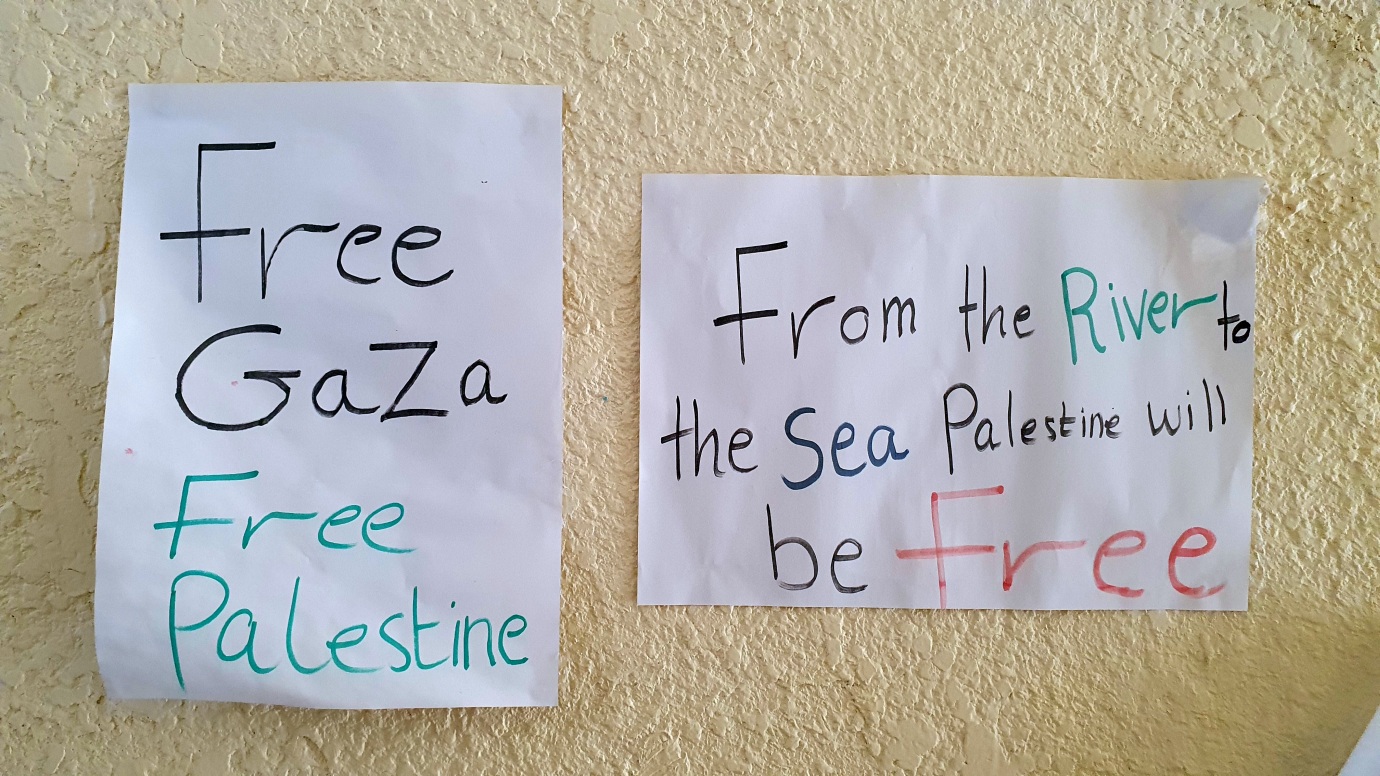 Free
Gaza
Free
Palestine
From the River to
the Sea Palestine will
be Free